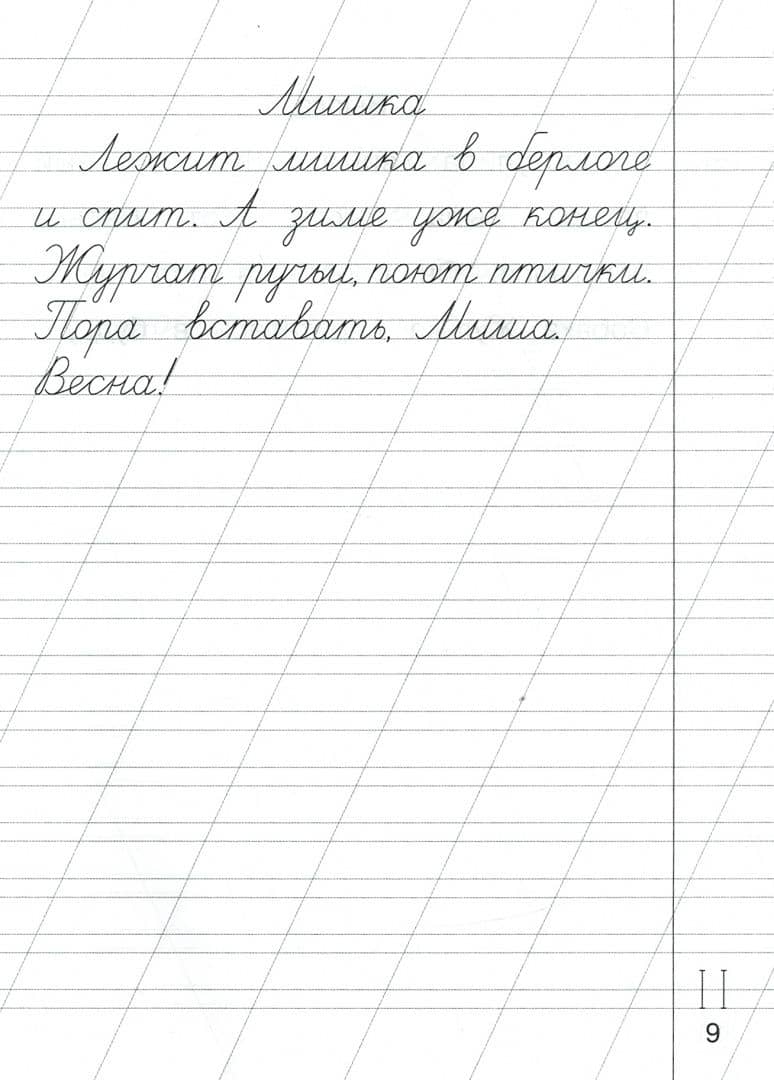 Мишка
Лежит мишка в берлоге
и спит. А зиме уже конец.
Журчат ручьи, поют птички.
Пора вставать, Миша.
Весна!
9